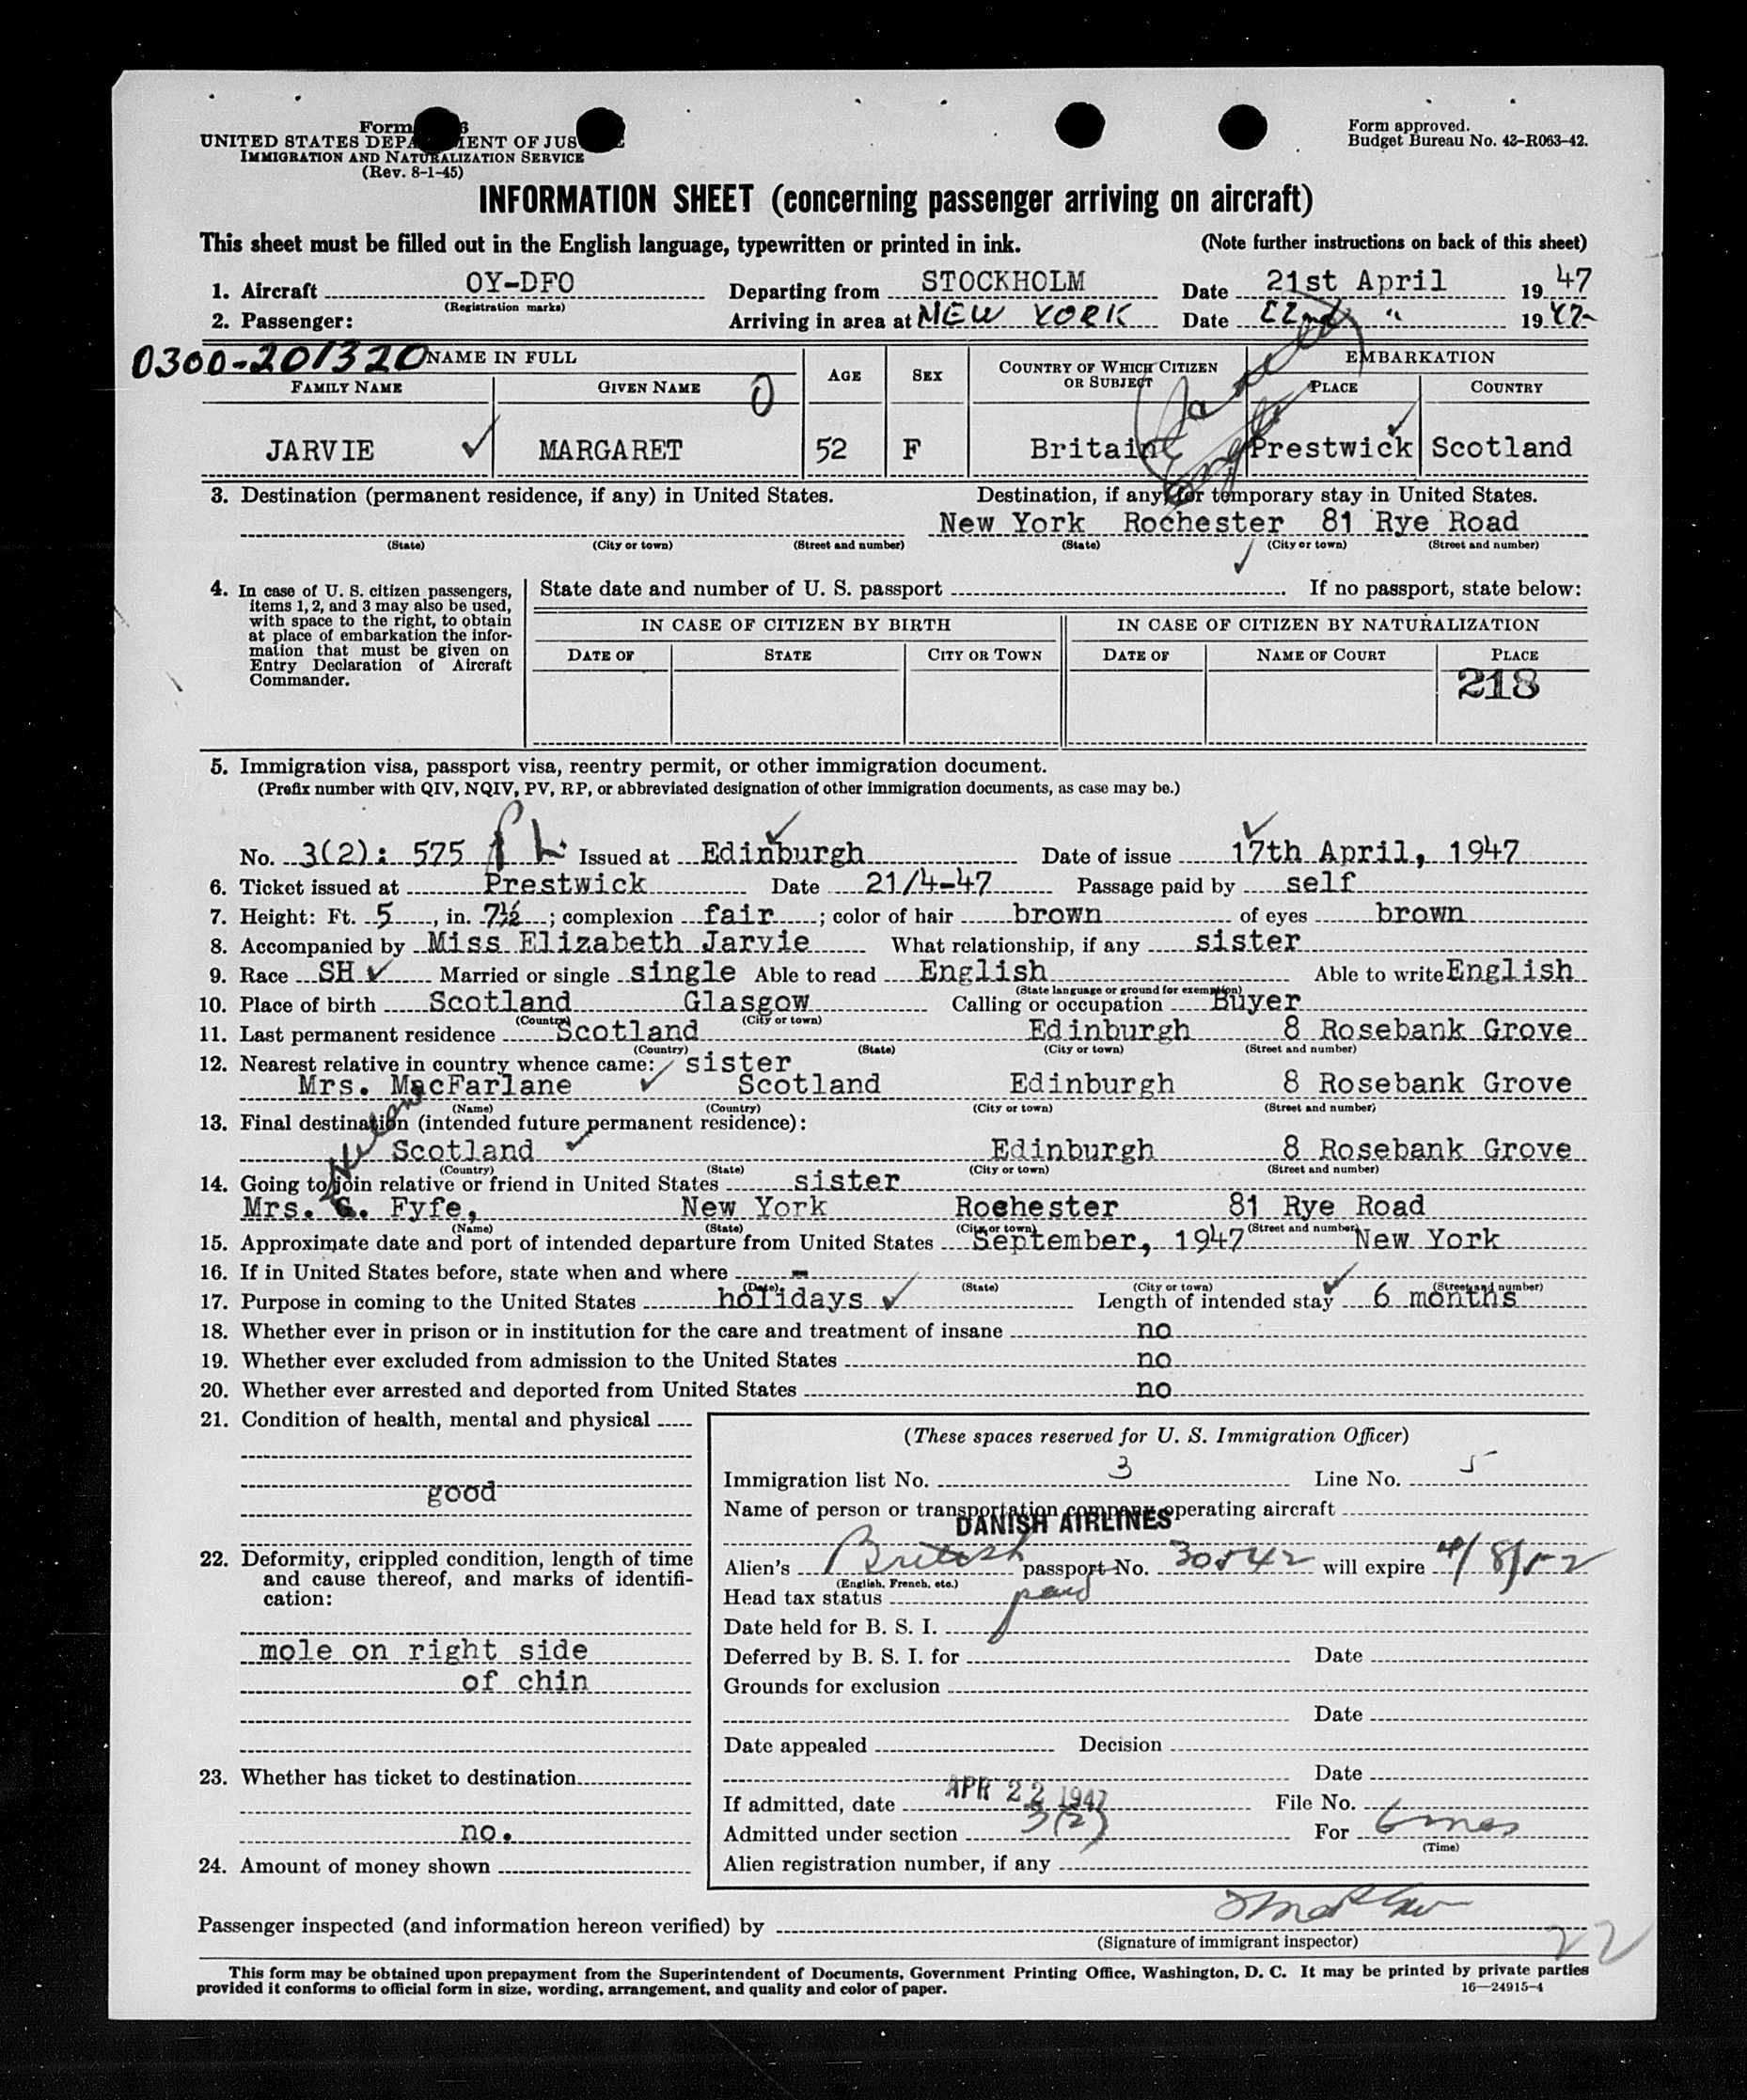 Form
UNITED STATES DEPARTMENT OF JUSTICE
IMMIGRATION AND NATURALIZATION SERVICE
(Rev. 8-1-45)
Form approved.
Budget Bureau No. 43-R063-42.
INFORMATION SHEET (concerning passenger arriving on aircraft)
This sheet must be filled out in the English language, typewritten or printed in ink. (Note further instructions on back of this sheet)
1. Aircraft OY-DFO Departing from STOCKHOLM Date 21st April 1947
(Registration marks)
2. Passenger: Arriving in area at NEW YORK Date 22nd " 1947
0300-201320 NAME IN FULL AGE SEX COUNTRY OF WHICH CITIZEN OR SUBJECT EMBARKATION
FAMILY NAME GIVEN NAME 0 PLACE COUNTRY
JARVIE MARGARET 52 F Britain Prestwick Scotland
3. Destination (permanent residence, if any) in United States. Destination, if any, for temporary stay in United States.
New York Rochester 81 Rye Road
(State) (City or town) (Street and number) (State) (City or town) (Street and number)
4. In case of U. S. citizen passengers, items 1, 2, and 3 may also be used, with space to the right, to obtain at place of embarkation the information that must be given on Entry Declaration of Aircraft Commander.
State date and number of U. S. passport If no passport, state below:
IN CASE OF CITIZEN BY BIRTH IN CASE OF CITIZEN BY NATURALIZATION
DATE OF STATE CITY OR TOWN DATE OF NAME OF COURT PLACE
218
5. Immigration visa, passport visa, reentry permit, or other immigration document.
(Prefix number with QIV, NQIV, PV, RP, or abbreviated designation of other immigration documents, as case may be.)
No. 3(2): 575 Issued at Edinburgh Date of issue 17th April, 1947
6. Ticket issued at Prestwick Date 21/4-47 Passage paid by self
7. Height: Ft. 5, in. 7½; complexion fair; color of hair brown of eyes brown
8. Accompanied by Miss Elizabeth Jarvie What relationship, if any sister
9. Race SH Married or single single Able to read English Able to write English
(State language or ground for exemption)
10. Place of birth Scotland Glasgow Calling or occupation Buyer
(Country) (City or town)
11. Last permanent residence Scotland Edinburgh 8 Rosebank Grove
(Country) (State) (City or town) (Street and number)
12. Nearest relative in country whence came: sister
Mrs. MacFarlane Scotland Edinburgh 8 Rosebank Grove
(Name) (Country) (City or town) (Street and number)
13. Final destination (intended future permanent residence):
Scotland Edinburgh 8 Rosebank Grove
(Country) (State) (City or town) (Street and number)
14. Going to join relative or friend in United States sister
Mrs. G. Fyfe, New York Rochester 81 Rye Road
(Name) (State) (City or town) (Street and number)
15. Approximate date and port of intended departure from United States September, 1947 New York
16. If in United States before, state when and where -
(Date) (State) (City or town) (Street and number)
17. Purpose in coming to the United States holidays Length of intended stay 6 months
18. Whether ever in prison or in institution for the care and treatment of insane no
19. Whether ever excluded from admission to the United States no
20. Whether ever arrested and deported from United States no
21. Condition of health, mental and physical
good
22. Deformity, crippled condition, length of time and cause thereof, and marks of identification:
mole on right side
of chin
23. Whether has ticket to destination
no.
24. Amount of money shown
(These spaces reserved for U. S. Immigration Officer)
Immigration list No. 3 Line No. 5
Name of person or transportation company operating aircraft
DANISH AIRLINES
Alien's British passport No. 30542 will expire 4/8/52
(English, French, etc.)
Head tax status paid
Date held for B. S. I.
Deferred by B. S. I. for Date
Grounds for exclusion
Date
Date appealed Decision
Date
If admitted, date APR 22 1947 File No.
Admitted under section 3(2) For 6 mos
(Time)
Alien registration number, if any
Passenger inspected (and information hereon verified) by
(Signature of immigrant inspector)
22
This form may be obtained upon prepayment from the Superintendent of Documents, Government Printing Office, Washington, D. C. It may be printed by private parties
provided it conforms to official form in size, wording, arrangement, and quality and color of paper. 16—24915-4